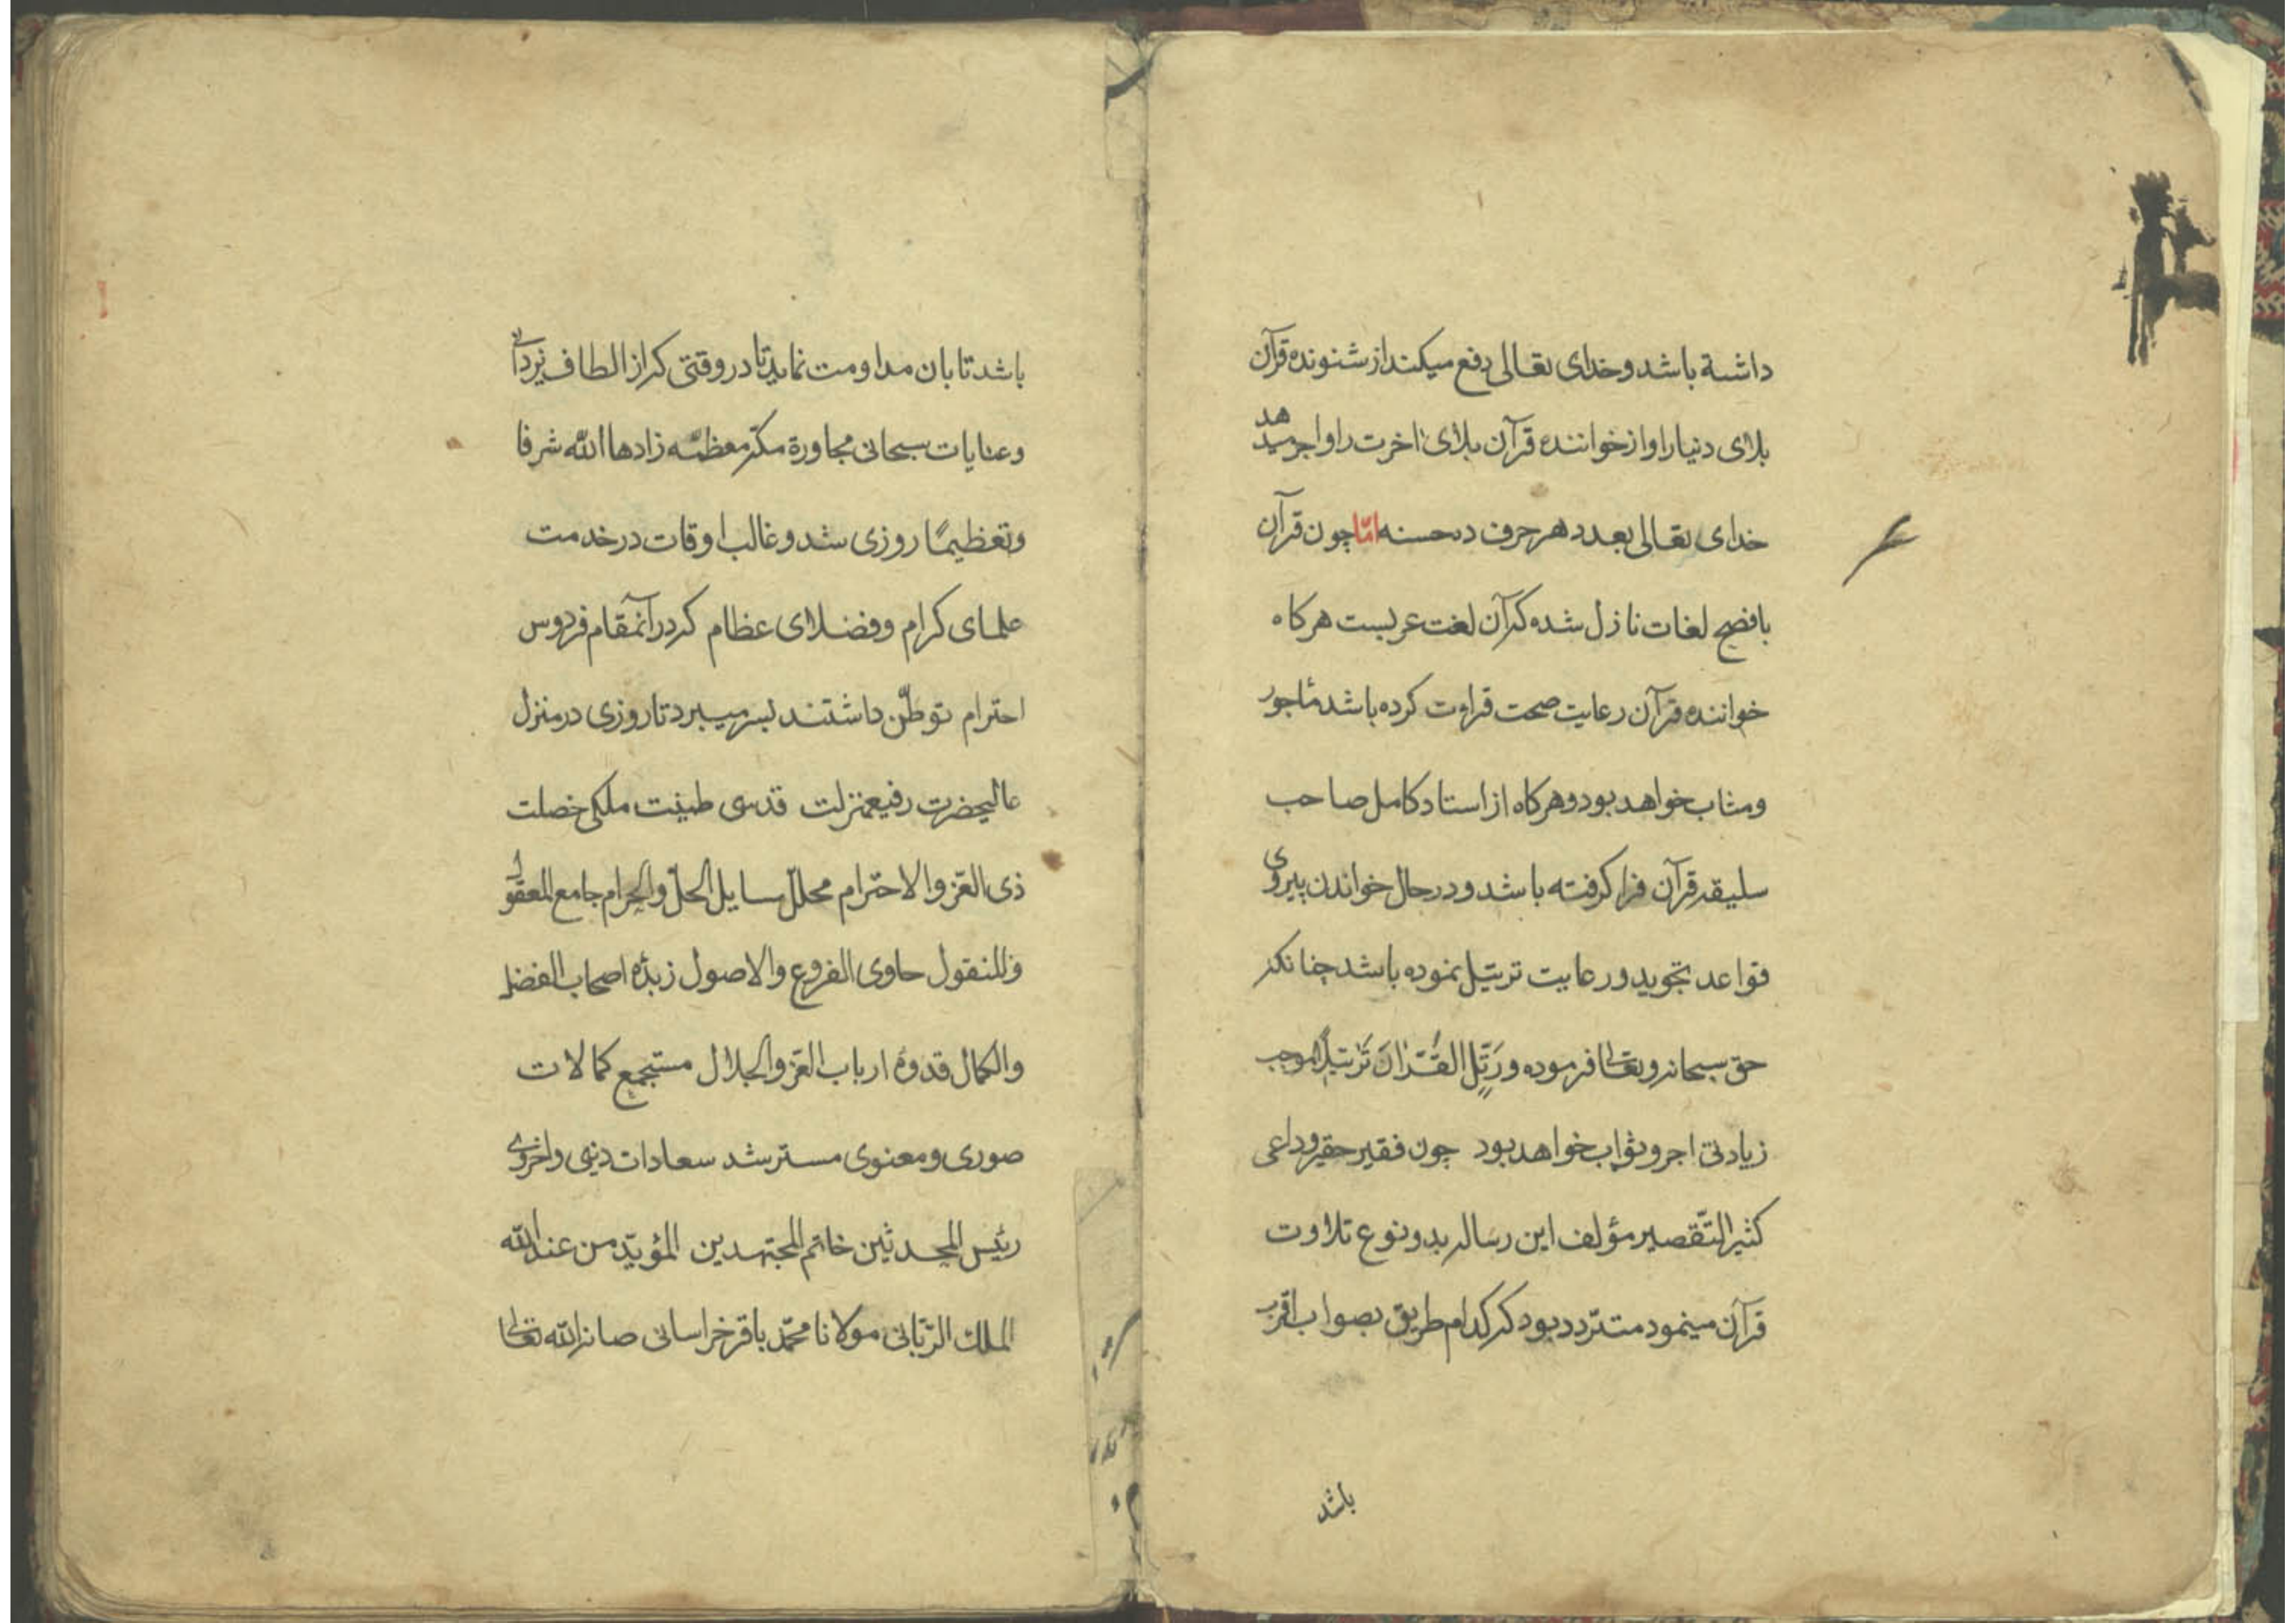 داشته باشد و خدای تعالی دفع میکند از شنونده قرآن
بلای دنیا را و از خواننده قرآن بلای اخرت را و اجر میدهد
خدای تعالی بعدد هر حرف ده حسنه امّا چون قرآن
بافصح لغات نازل شده که آن لغت عربیست هرکاه
خواننده قرآن رعایت صحت قراءت کرده باشد مأجور
و مثاب خواهد بود و هرکاه از استاد کامل صاحب
سلیقه قرآن فرا کرفته باشد و در حال خواندن پیروی
قواعد تجوید و رعایت ترتیل نموده باشد چنانکه
حق سبحانه و تعالی فرموده وَرَتِّلِ القُرْانَ تَرْتِیلًا موجب
زیادتی اجر و ثواب خواهد بود چون فقیر حقیر و داعی
کثیر التّقصیر مؤلف این رساله بدو نوع تلاوت
قرآن مینمود متردد بود که کدام طریق بصواب اقرب
باشد
باشد تا بان مداومت نماید تا در وقتی که از الطاف یزدانی
و عنایات سبحانی مجاورة مکه معظمه زادها اللّه شرفا
و تعظیمًا روزی شد و غالب اوقات در خدمت
علمای کرام و فضلای عظام که در آنمقام فردوس
احترام توطّن داشتند بسر میبرد تا روزی در منزل
عالیحضرت رفیعمنزلت قدسی طینت ملکی خصلت
ذی العّز والاحترام محلّل مسایل الحلّ والحرام جامع المعقول
والمنقول حاوی الفروع والاصول زبدهٔ اصحاب الفضل
والکمال قدوهٔ ارباب العّز والجلال مستجمع کمالات
صوری و معنوی مسترشد سعادات دینی و اخروی
رئیس المحدثین خاتم المجتهدین المؤیّد من عند اللّه
الملک الرّبانی مولانا محمّد باقر خراسانی صانه اللّه تعالی